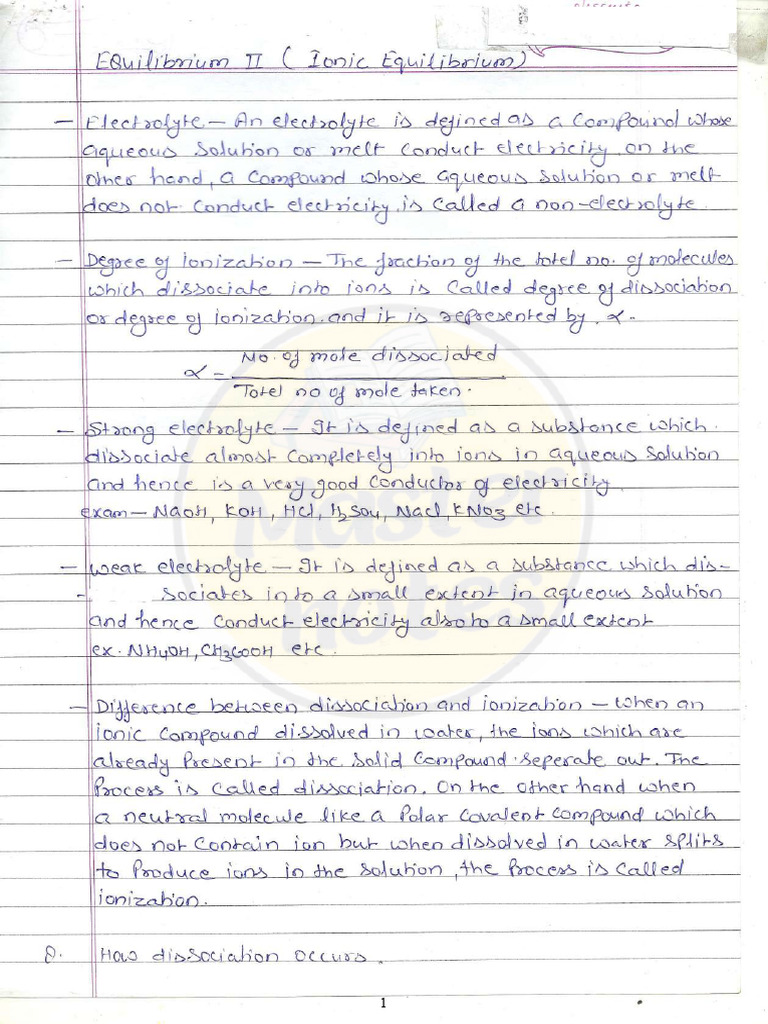 EQuilibrium II ( Ionic Equilibrium)
- Electrolyte - An electrolyte is defined as a compound whose
aqueous solution or melt conduct electricity. on the
other hand, a compound whose aqueous solution or melt
does not conduct electricity. is called a non-electrolyte.
- Degree of ionization - The fraction of the total no. of molecules
which dissociate into ions is called degree of dissociation
or degree of ionization. and it is represented by. α.
α = No. of mole dissociated
Total no of mole taken.
- Strong electrolyte - It is defined as a substance which.
dissociate almost completely into ions in aqueous solution
and hence is a very good conductor of electricity.
exam - NaOH, KOH, HCl, H2SO4, NaCl, KNO3 etc.
- Weak electrolyte - It is defined as a substance which dis-
- sociates in to a small extent in aqueous solution
and hence conduct electricity also to a small extent
ex. NH4OH, CH3COOH etc.
- Difference between dissociation and ionization - when an
ionic compound dissolved in water, the ions which are
already present in the solid compound. seperate out. The
Process is called dissociation. On the other hand when
a neutral molecule like a Polar covalent compound which
does not contain ion but when dissolved in water splits
to Produce ions in the solution, the Process is called
ionization.
Q. How dissociation occurs.
Master
notes
1